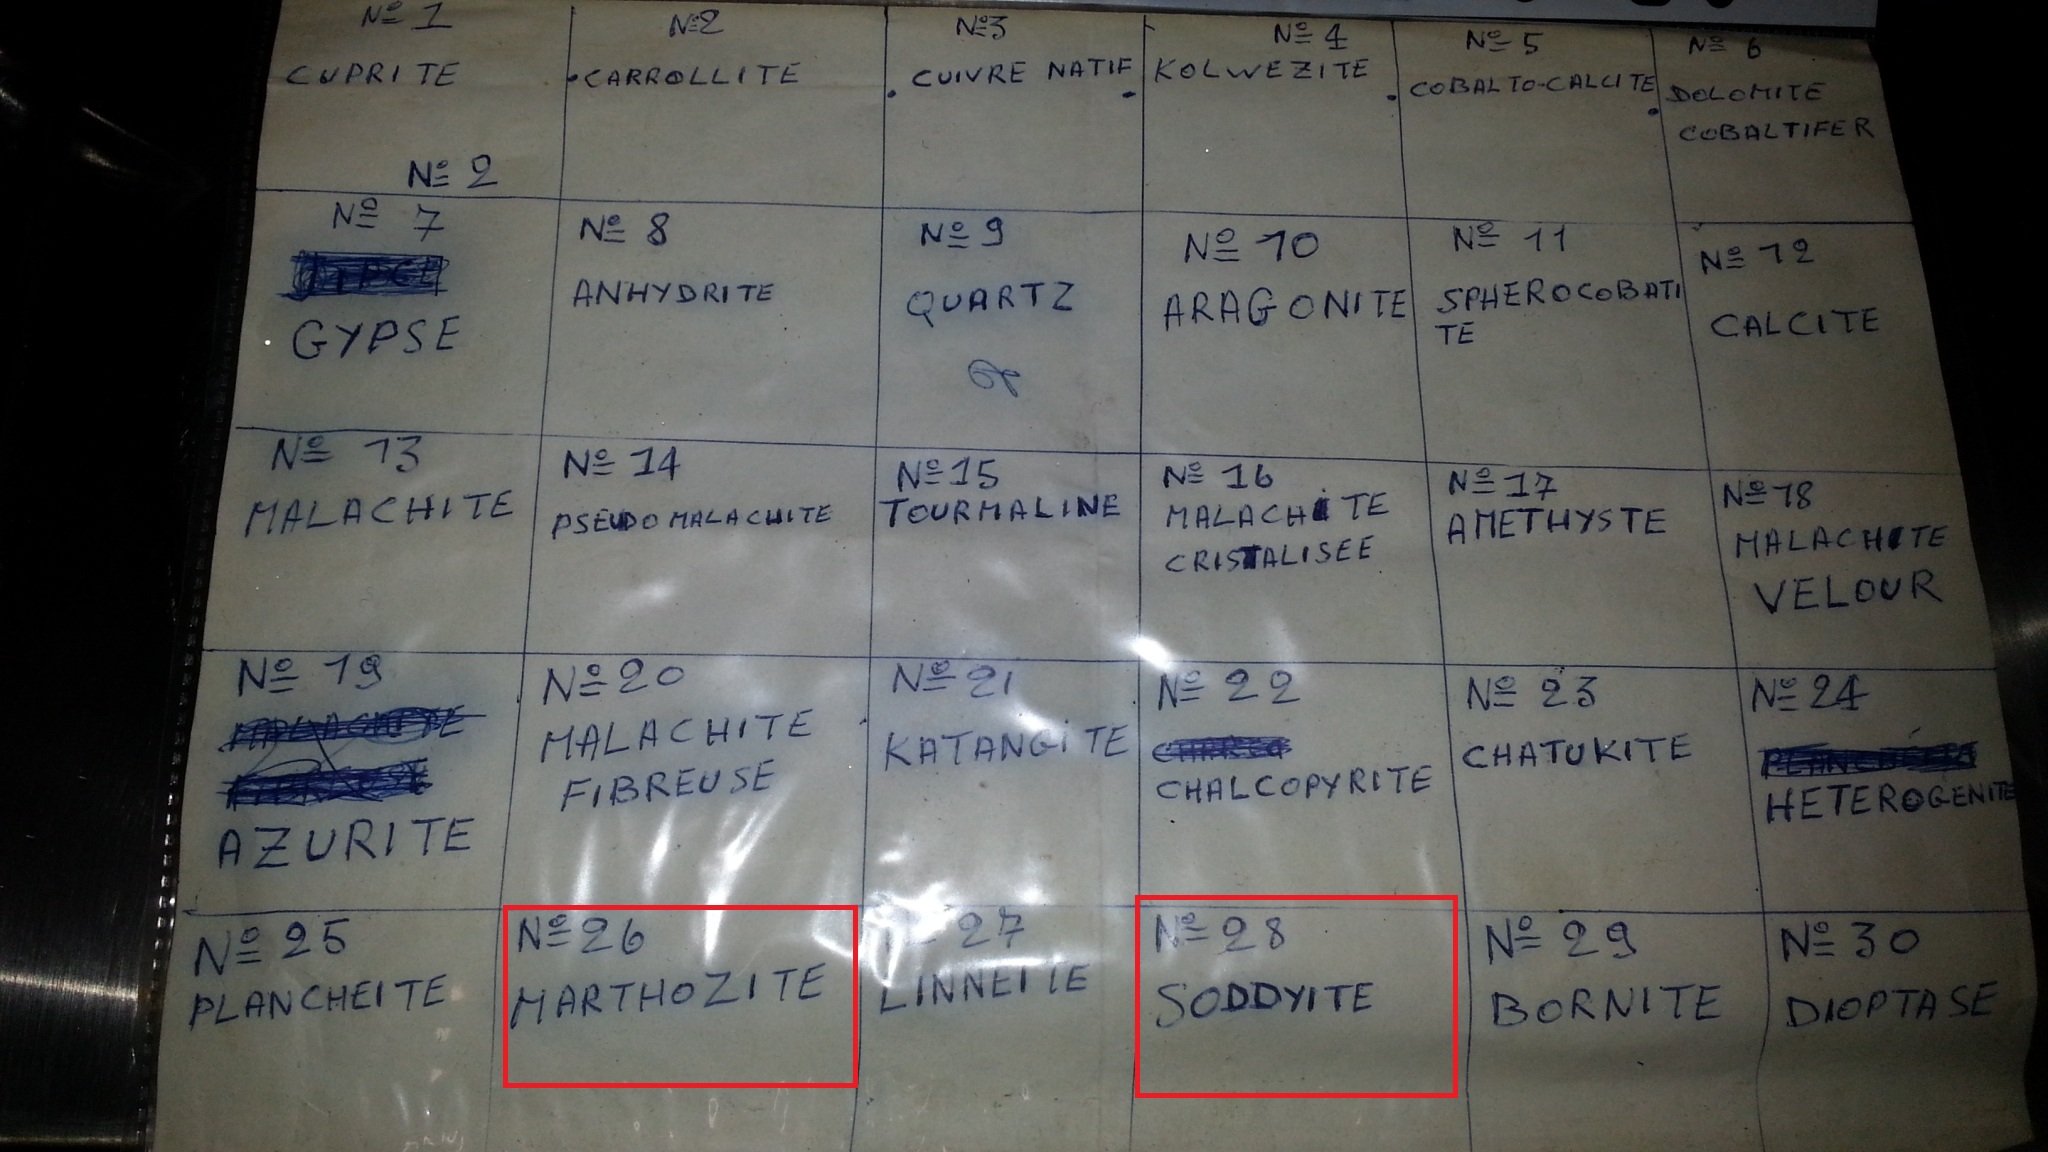 Nº 1
CUPRITE
Nº 2
Nº2
CARROLLITE
Nº3
CUIVRE NATIF
Nº 4
KOLWEZITE
Nº 5
COBALTO-CALCITE
Nº 6
DOLOMITE
COBALTIFER
Nº 7
GYPSE
Nº 8
ANHYDRITE
Nº 9
QUARTZ
Nº 10
ARAGONITE
Nº 11
SPHEROCOBATI
TE
Nº 12
CALCITE
Nº 13
MALACHITE
Nº 14
PSEUDOMALACHITE
Nº 15
TOURMALINE
Nº 16
MALACHITE
CRISTALISEE
Nº 17
AMETHYSTE
Nº 18
MALACHITE
VELOUR
Nº 19
AZURITE
Nº 20
MALACHITE
FIBREUSE
Nº 21
KATANGITE
Nº 22
CHALCOPYRITE
Nº 23
CHATUKITE
Nº 24
HETEROGENITE
Nº 25
PLANCHEITE
Nº 26
MARTHOZITE
27
LINNEITE
Nº 28
SODDYITE
Nº 29
BORNITE
Nº 30
DIOPTASE